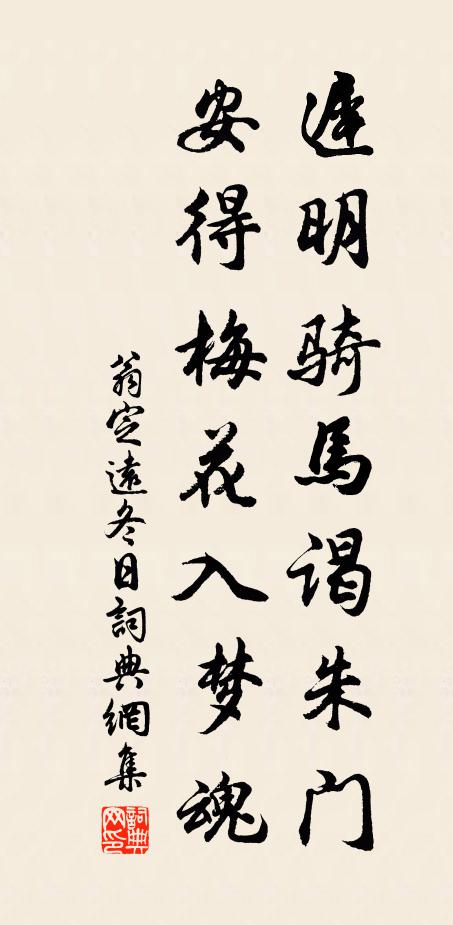 遲明骑馬谒朱门
安得梅花入梦魂
翁定遠冬日詞典網集
詞典网印